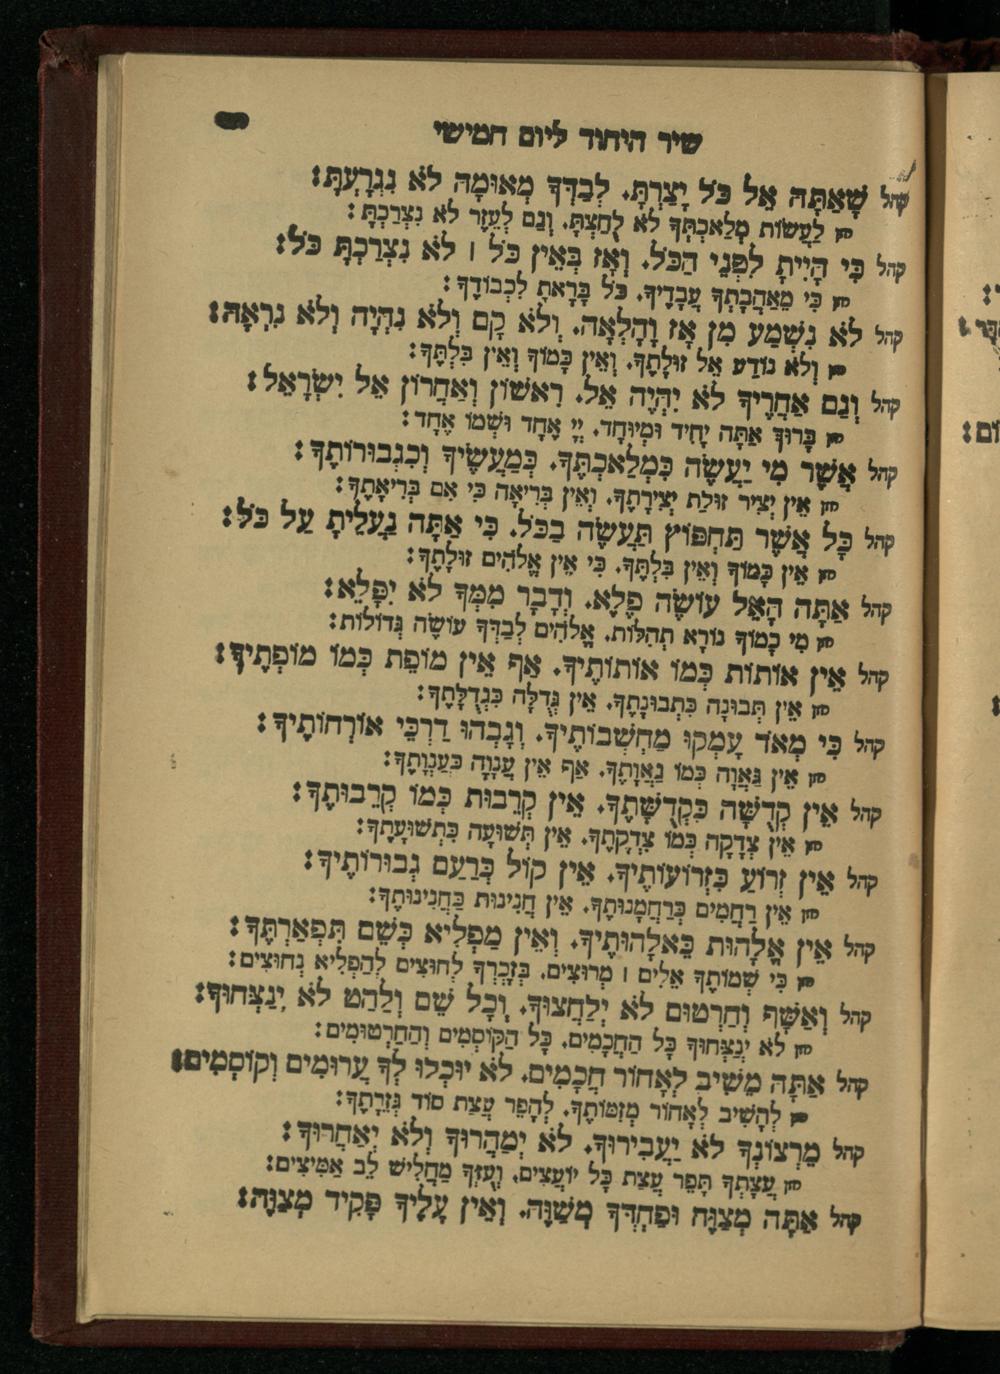 שיר היחוד ליום חמישי
קהל שָׁאַתָּה אֵל כֹּל יָצַרְתָּ. לְבַדְּךָ מְאוּמָה לֹא נִגְרָעְתָּ:
חזן לַעֲשׂוֹת מְלַאכְתְּךָ לֹא לֻחַצְתָּ. וְגַם לְעֵזֶר לֹא נִצְרַכְתָּ:
קהל כִּי הָיִיתָ לִפְנֵי הַכֹּל. וְאָז בְּאֵין כֹּל ׀ לֹא נִצְרַכְתָּ כֹּל:
חזן כִּי מֵאַהֲבָתְךָ עֲבָדֶיךָ. כֹּל בָּרָאתָ לִכְבוֹדֶךָ:
קהל לֹא נִשְׁמַע מִן אָז וָהָלְאָה. וְלֹא קָם וְלֹא נִהְיָה וְלֹא נִרְאָה:
חזן וְלֹא נוֹדַע אֵל זוּלָתֶךָ. וְאֵין כָּמוֹךָ וְאֵין בִּלְתֶּךָ:
קהל וְגַם אַחֲרֶיךָ לֹא יִהְיֶה אֵל. רִאשׁוֹן וְאַחֲרוֹן אֵל יִשְׂרָאֵל:
חזן בָּרוּךְ אַתָּה יָחִיד וּמְיֻוחָד. יְיָ אֶחָד וּשְׁמוֹ אֶחָד:
קהל אֲשֶׁר מִי יַעֲשֶׂה כִּמְלַאכְתֶּךָ. כְּמַעֲשֶׂיךָ וְכִגְבוּרוֹתֶךָ:
חזן אֵין יְצִיר זוּלַת יְצִירָתֶךָ. וְאֵין בְּרִיאָה כִּי אִם בְּרִיאָתֶךָ:
קהל כָּל אֲשֶׁר תַּחְפּוֹץ תַּעֲשֶׂה בַכֹּל. כִּי אַתָּה נַעֲלֵיתָ עַל כֹּל:
חזן אֵין כָּמוֹךָ וְאֵין בִּלְתֶּךָ. כִּי אֵין אֱלֹהִים זוּלָתֶךָ:
קהל אַתָּה הָאֵל עוֹשֶׂה פֶלֶא. וְדָבָר מִמְּךָ לֹא יִפָּלֵא:
חזן מִי כָמוֹךָ נוֹרָא תְהִלּוֹת. אֱלֹהִים לְבַדְּךָ עוֹשֶׂה גְּדוֹלוֹת:
קהל אֵין אוֹתוֹת כְּמוֹ אוֹתוֹתֶיךָ. אַף אֵין מוֹפֵת כְּמוֹ מוֹפְתֶיךָ:
חזן אֵין תְּבוּנָה כִּתְבוּנָתֶךָ. אֵין גְּדֻלָּה כִּגְדֻלָּתֶךָ:
קהל כִּי מְאֹד עָמְקוּ מַחְשְׁבוֹתֶיךָ. וְגָבְהוּ דַּרְכֵי אוֹרְחוֹתֶיךָ:
חזן אֵין גַּאֲוָה כְּמוֹ גַאֲוָתֶךָ. אַף אֵין עֲנָוָה כְּעַנְוָתֶךָ:
קהל אֵין קְדֻשָּׁה כִּקְדֻשָּׁתֶךָ. אֵין קְרֵבוּת כְּמוֹ קְרֵבוּתֶךָ:
חזן אֵין צְדָקָה כְּמוֹ צִדְקָתֶךָ. אֵין תְּשׁוּעָה כִּתְשׁוּעָתֶךָ:
קהל אֵין זְרוֹעַ כִּזְרוֹעוֹתֶיךָ. אֵין קוֹל כְּרַעַם גְּבוּרוֹתֶיךָ:
חזן אֵין רַחֲמִים כְּרַחֲמָנוּתֶךָ. אֵין חֲנִינוּת כַּחֲנִינוּתֶךָ:
קהל אֵין אֱלָהוּת כֵּאלָהוּתֶיךָ. וְאֵין מַפְלִיא כְּשֵׁם תִּפְאַרְתֶּךָ:
חזן כִּי שְׁמוֹתֶךָ אֵלִים ׀ מְרוּצִים. בְּזָכְרְךָ לְחוּצִים לְהַפְלִיא נְחוּצִים:
קהל וְאַשָּׁף וְחַרְטוּם לֹא יִלְחָצוּךָ. וְכָל שֵׁם וְלַהַט לֹא יְנַצְּחוּךָ:
חזן לֹא יְנַצְּחוּךָ כָּל הַחֲכָמִים. כָּל הַקּוֹסְמִים וְהַחַרְטוּמִים:
קהל אַתָּה מֵשִׁיב לְאָחוֹר חֲכָמִים. לֹא יוּכְלוּ לְךָ עֲרוּמִים וְקוֹסְמִים:
חזן לְהָשִׁיב לְאָחוֹר מְזִמּוֹתֶךָ. לְהָפֵר עֲצַת סוֹד גְּזֵרָתֶךָ:
קהל מֵרְצוֹנְךָ לֹא יַעֲבִירוּךָ. לֹא יְמַהֲרוּךָ וְלֹא יְאַחֲרוּךָ:
חזן עֲצָתְךָ תָּפֵר עֲצַת כָּל יוֹעֲצִים. וְעֻזְּךָ מַחֲלִישׁ לֵב אַמִּיצִים:
קהל אַתָּה מְצַוֶּה וּפַחְדְּךָ מְשַׁוֶּה. וְאֵין עָלֶיךָ פָּקִיד מְצַוֶּה: